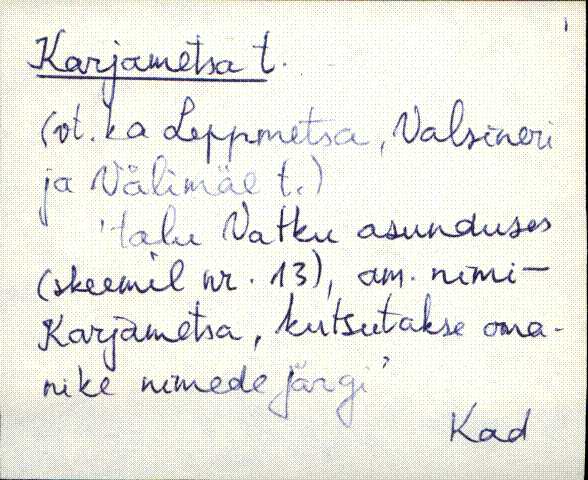 Karjametsa t.
(vt. ka Leppmetsa, Valsineri
ja Välimäe t.)
'talu Vatku asunduses
(skeemil nr. 13), am. nimi –
Karjametsa, kutsutakse oma-
nike nimede järgi'
Kad